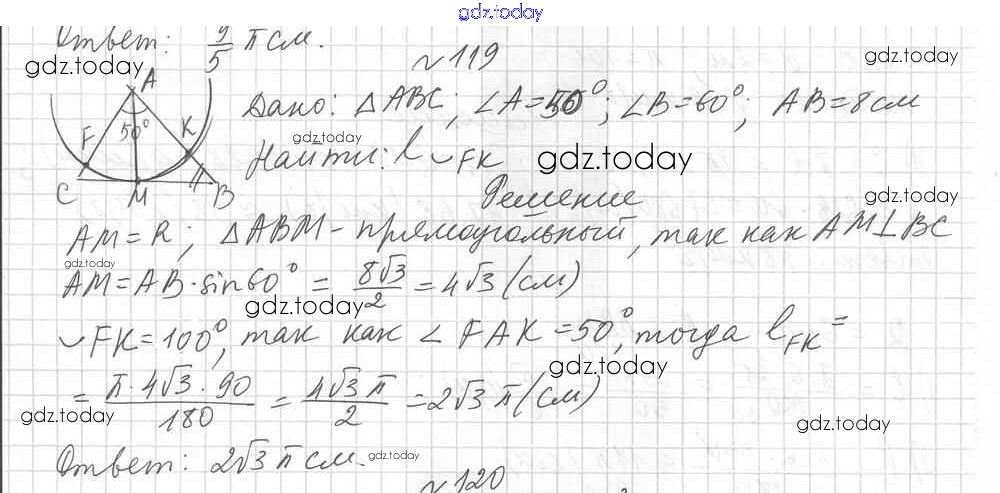 gdz.today
Ответ: 9/5 π см.
gdz.today
№119
gdz.today
A
50°
F
K
C
M
B
Дано: △ABC; ∠A=50°; ∠B=60°; AB=8см
gdz.today
Найти: l ◡FK
gdz.today
gdz.today
Решение
AM=R; △ABM-прямоугольный, так как AM⊥BC
gdz.today
AM=AB·sin60° = 8√3/2 = 4√3 (см)
gdz.today
◡FK=100°, так как ∠FAK=50°, тогда l FK =
gdz.today
= π·4√3·90/180 = 4√3 π/2 = 2√3 π (см)
gdz.today
gdz.today
Ответ: 2√3 π см.
gdz.today
№120